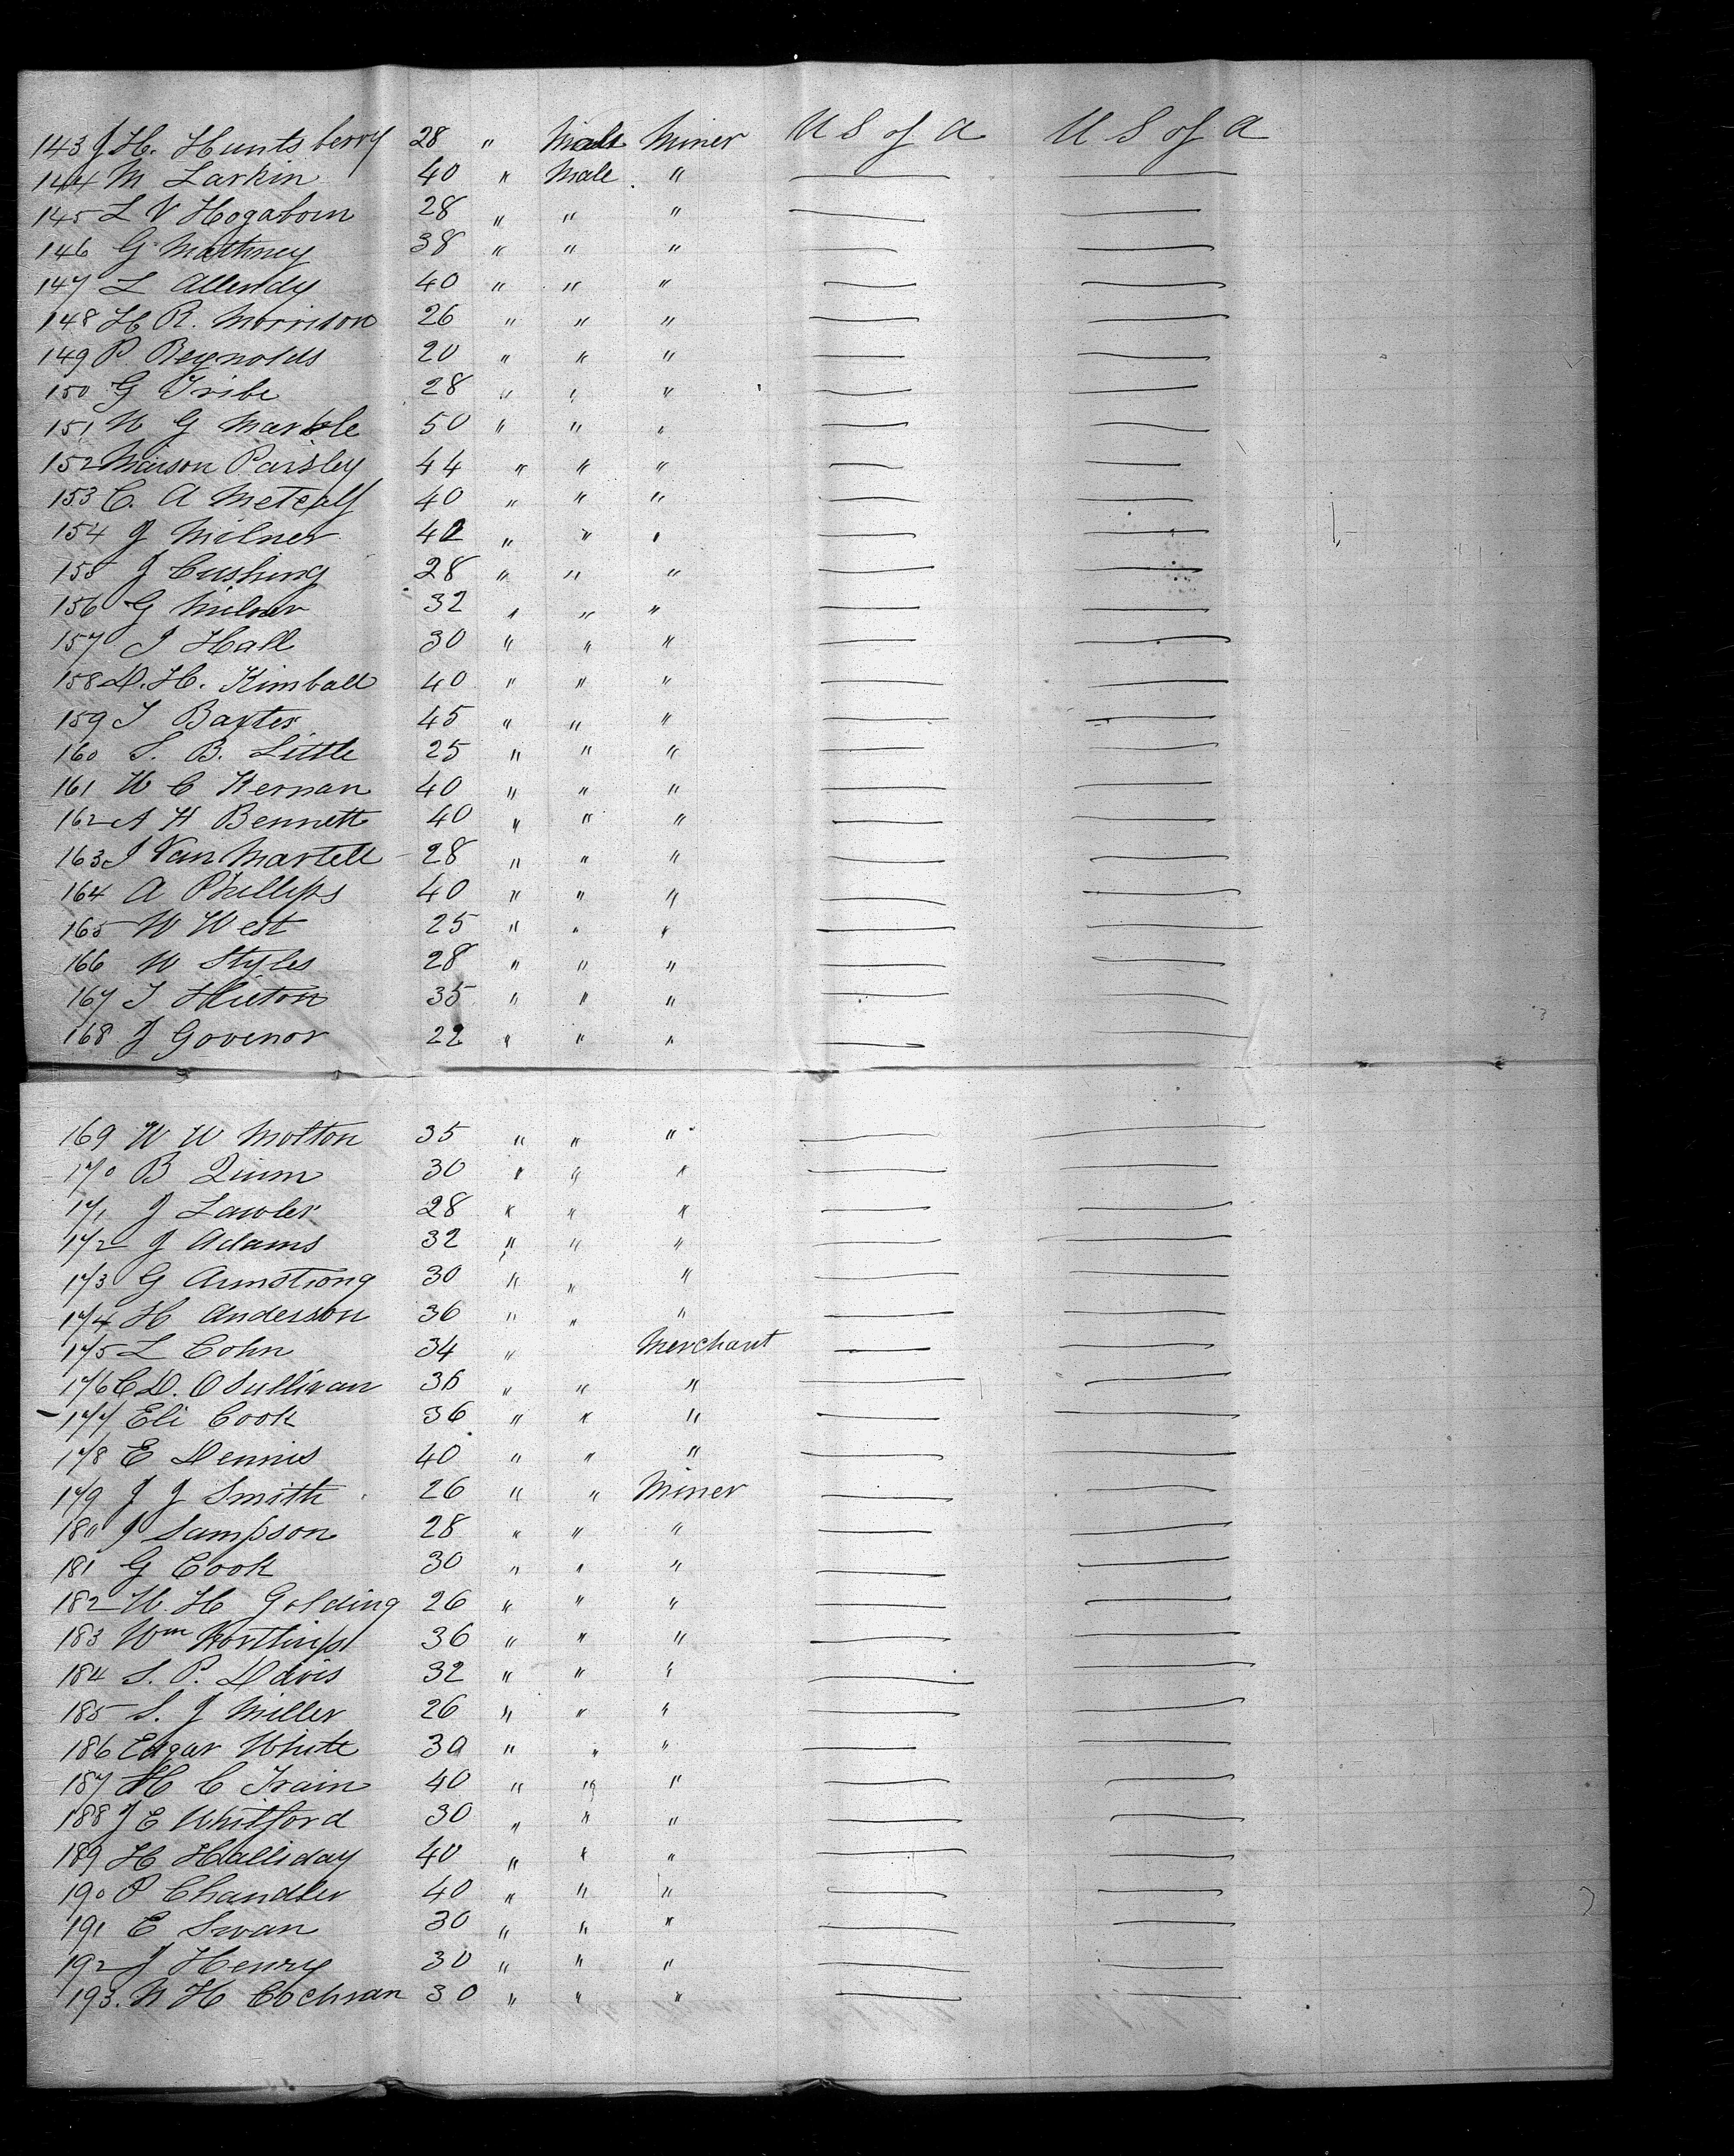 143 J H. Huntsberry 28 " Male Miner U S of A U S of A
144 M Larkin 40 " Male " — —
145 L V Hogaboin 28 " " " — —
146 G Mathney 38 " " " — —
147 L Allendy 40 " " " — —
148 H R. Morrison 26 " " " — —
149 P Reynolds 20 " " " — —
150 G Tribe 28 " " " — —
151 N G Markle 50 " " " — —
152 Maison Parsley 44 " " " — —
153 C. A Metcalf 40 " " " — —
154 J Milner 42 " " " — —
155 J Cushing 28 " " " — —
156 G Milner 32 " " " — —
157 J Hall 30 " " " — —
158 D. H. Kimball 40 " " " — —
159 J Baxter 45 " " " — —
160 S. B. Little 25 " " " — —
161 W C Kernan 40 " " " — —
162 A H Bennett 40 " " " — —
163 J Van Martell 28 " " " — —
164 A Phillips 40 " " " — —
165 W West 25 " " " — —
166 W Styles 28 " " " — —
167 J 35 " " " — —
168 J Govenor 22 " " " — —
169 W W Molton 35 " " " — —
170 B Quinn 30 " " " — —
171 J Lawler 28 " " " — —
172 J Adams 32 " " " — —
173 G Armstrong 30 " " " — —
174 H Anderson 36 " " " — —
175 L Cohn 34 " Merchant — —
176 C D. O Sullivan 36 " " " — —
177 Eli Cook 36 " " " — —
178 E Dennis 40 " " " — —
179 J J Smith 26 " " Miner — —
180 J Sampson 28 " " " — —
181 G Cook 30 " " " — —
182 W. H Golding 26 " " " — —
183 Wm Northrup 36 " " " — —
184 S. P. Davis 32 " " " — —
185 S. J Miller 26 " " " — —
186 Edgar White 30 " " " — —
187 H C Train 40 " " " — —
188 J E Whitford 30 " " " — —
189 H Halliday 40 " " " — —
190 P Chandler 40 " " " — —
191 E Swan 30 " " " — —
192 J Henry 30 " " " — —
193. N H Cochran 30 " " " — —